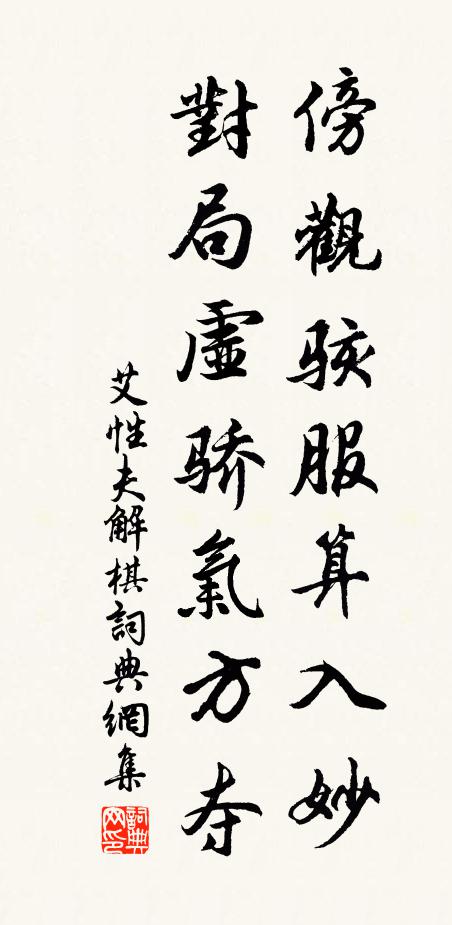 傍觀骇服算入妙
對局虛骄氣方夺
艾性夫解棋詞典網集
詞典网印